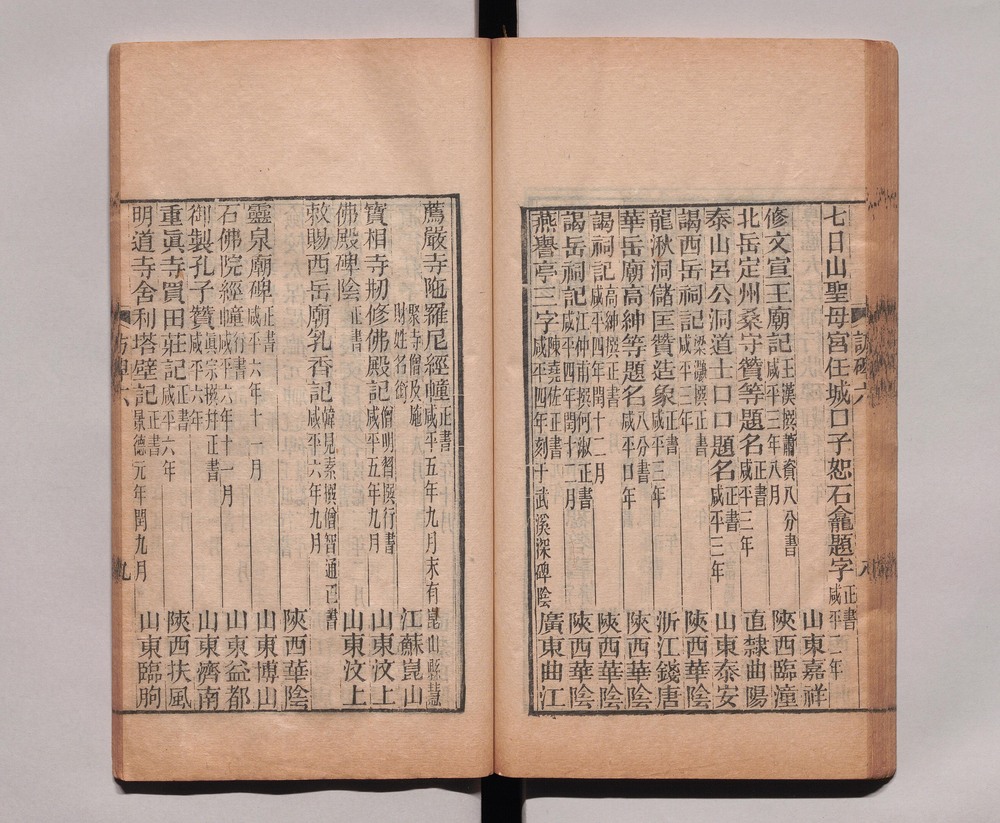 七日山聖母宮任城口子恕石龕題字正書咸平二年 山東嘉祥
修文宣王廟記王漢撰蕭賁八分書咸平三年八月 陝西臨潼
北岳定州桑守贊等題名正書咸平三年 直隸曲陽
泰山呂公洞道士口口題名正書咸平三年 山東泰安
謁西岳祠記梁灝撰正書咸平三年 陝西華陰
龍湫洞儲匡贊造象正書咸平三年 浙江錢唐
華岳廟高紳等題名八分書咸平口年 陝西華陰
謁祠記高紳撰正書咸平四年閏十二月 陝西華陰
謁岳祠記江仲甫撰何淑正書咸平四年閏十二月 陝西華陰
燕譽亭三字陳堯佐正書咸平四年刻于武溪深碑陰 廣東曲江
訪碑六
薦嚴寺陁羅尼經幢正書咸平五年九月末有崑山縣慧
聚寺僧及施財姓名銜 江蘇崑山
寶相寺刱修佛殿記僧明習撰行書咸平五年九月 山東汶上
佛殿碑陰正書 山東汶上
敕賜西岳廟乳香記韓見素撰僧智通正書咸平六年九月 陝西華陰
靈泉廟碑正書咸平六年十一月 山東博山
石佛院經幢行書咸平六年十一月 山東益都
御製孔子贊真宗撰幷正書咸平六年 山東濟南
重眞寺買田莊記正書咸平六年 陝西扶風
明道寺舍利塔壁記正書景德元年閏九月 山東臨朐
訪碑六
九